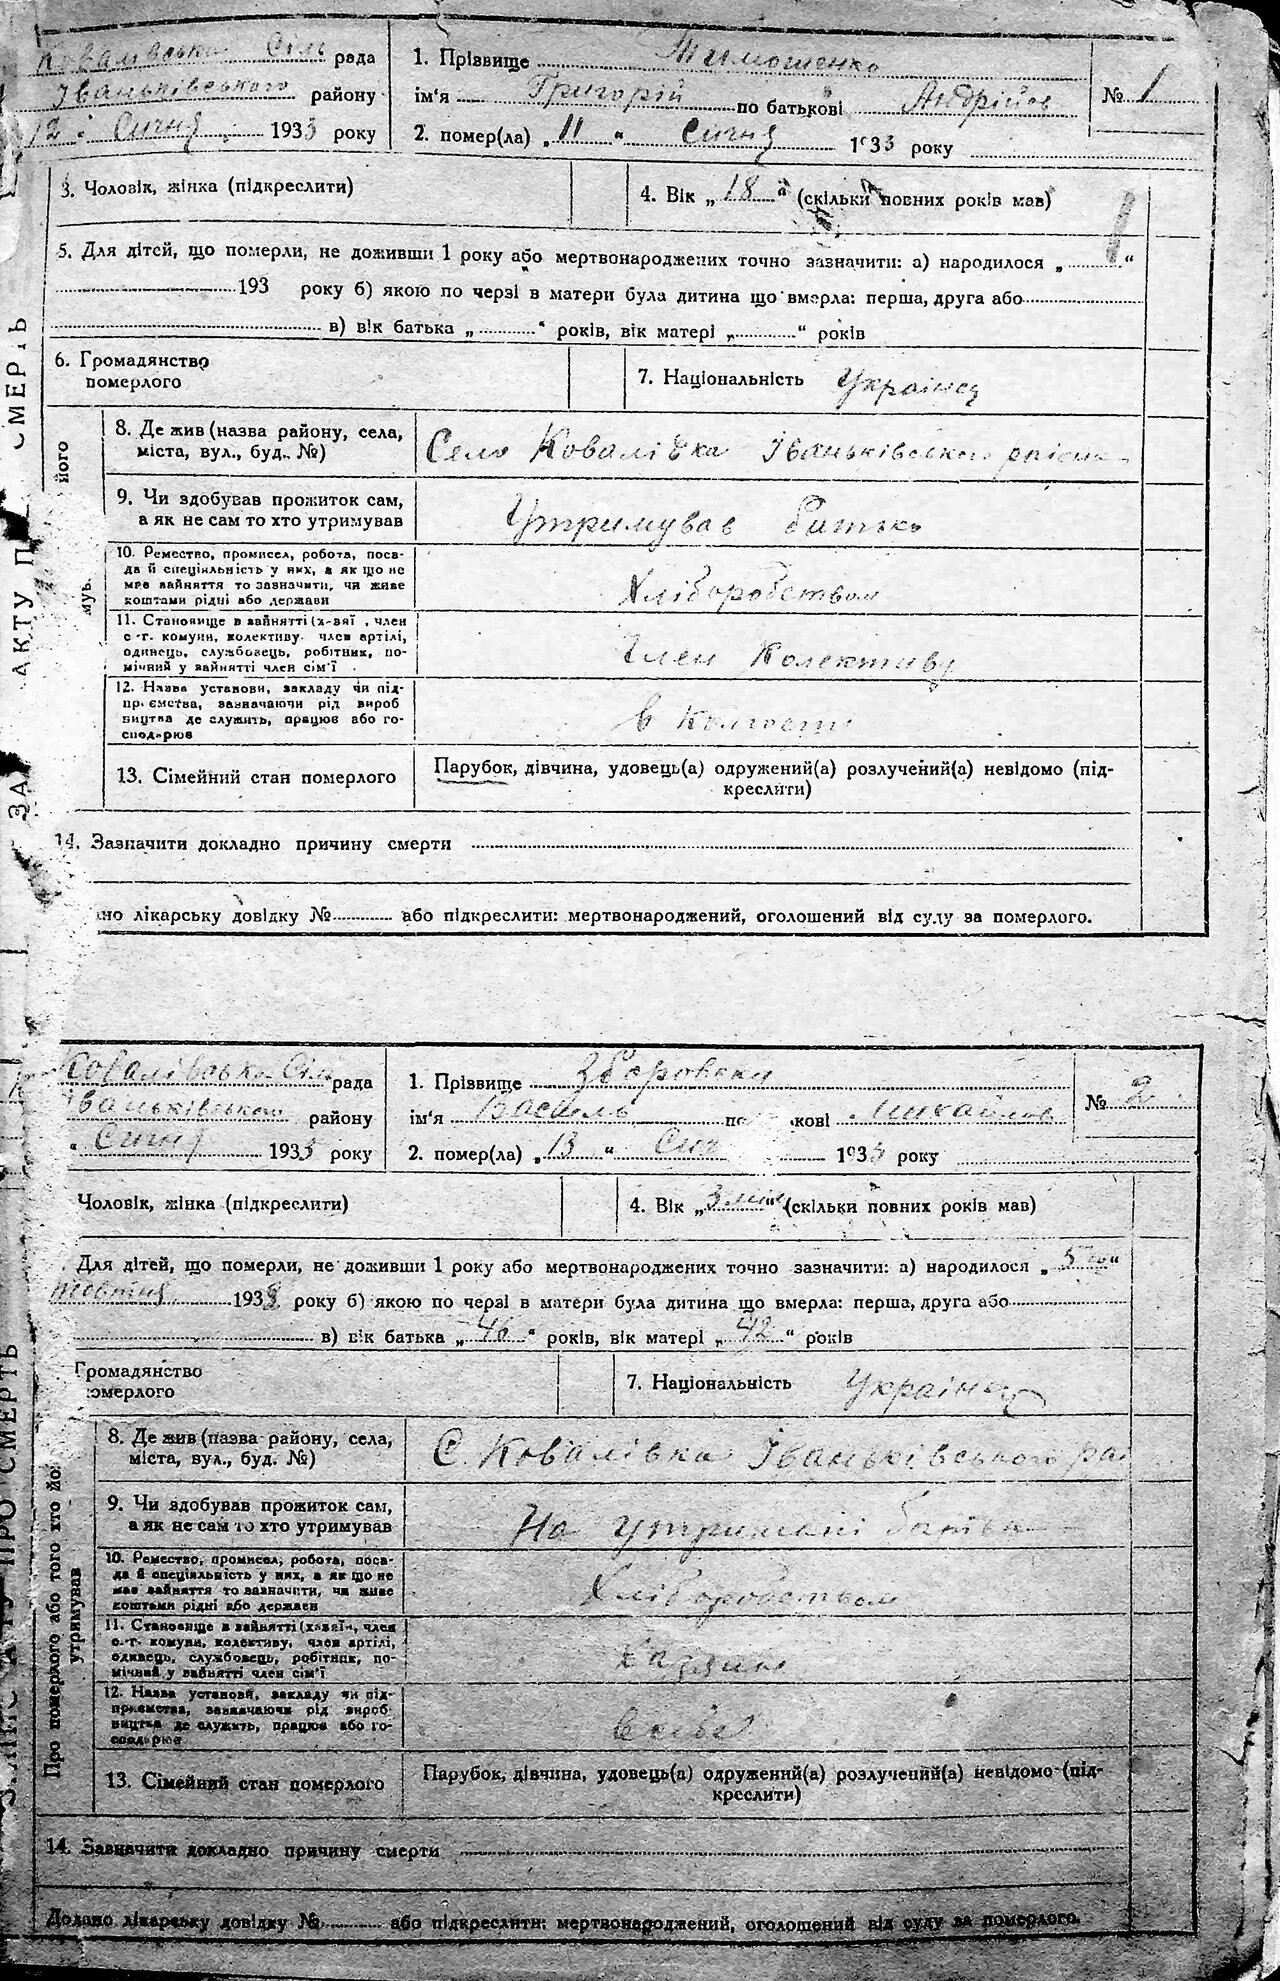 Ковалівська Сіль рада
Іваньківського району
12 Січня 1933 року
1. Прізвище Тимошенко
ім'я Григорій по батькові Андрійов
2. помер(ла) „11“ Січня 1933 року
№ 1
3. Чоловік, жінка (підкреслити)
4. Вік „18“ (скільки повних років мав)
5. Для дітей, що померли, не доживши 1 року або мертвонароджених точно зазначити: а) народилося „ “
193 року б) якою по черзі в матери була дитина що вмерла: перша, друга або
в) вік батька „ “ років, вік матері „ “ років
6. Громадянство
померлого
7. Національність Українец
8. Де жив (назва району, села,
міста, вул., буд. №)
Село Ковалівка Іваньківського
9. Чи здобував прожиток сам,
а як не сам то хто утримував
Утримував батько
10. Ремество, промисел, робота, поса-
да й спеціяльність у них, а як що не
має зайняття то зазначити, чи живе
коштами рідні або держави
Хліборобством
11. Становище в зайнятті (х-зяї , член
с.-г. комуни, колективу, член артілі,
одинець, службовець, робітник, по-
мічний у зайнятті член сім'ї
Член Колективу
12. Назва установи, закладу чи під-
приємства, зазначаючи рід вироб
ництва де служить, працює або го-
сподарює
в Колгоспі
13. Сімейний стан померлого
Парубок, дівчина, удовець(а) одружений(а) розлучений(а) невідомо (під-
креслити)
14. Зазначити докладно причину смерти
ано лікарську довідку № або підкреслити: мертвонароджений, оголошений від суду за померлого.
ЗА АКТУ П СМЕРТЬ
його
Ковалівська Сіль рада
Іваньківського району
Січня 1933 року
1. Прізвище Зборовски
ім'я Василь по кові Михайлов
2. помер(ла) „13“ Січ 1933 року
№ 2
Чоловік, жінка (підкреслити)
4. Вік „3 “ (скільки повних років мав)
Для дітей, що померли, не доживши 1 року або мертвонароджених точно зазначити: а) народилося „5 го“
Жовтня 1932 року б) якою по черзі в матери була дитина що вмерла: перша, друга або
в) вік батька „46“ років, вік матері „42“ років
Громадянство
померлого
7. Національність Українец
8. Де жив (назва району, села,
міста, вул., буд. №)
С. Ковалівка Іваньківського ра
9. Чи здобував прожиток сам,
а як не сам то хто утримував
На утримані батька
10. Ремество, промисел, робота, поса-
да й спеціяльність у них, а як що не
має зайняття то зазначити, чи живе
коштами рідні або держави
Хліборобством
11. Становище в зайнятті (хазяїн, член
с.-г. комуни, колективу, член артілі,
одинець, службовець, робітник, по-
мічний у зайнятті член сім'ї
12. Назва установи, закладу чи під-
приємства, зазначаючи рід вироб
ництва де служить, працює або го-
сподарює
13. Сімейний стан померлого
Парубок, дівчина, удовець(а) одружений(а) розлучений(а) невідомо (під-
креслити)
14. Зазначити докладно причину смерти
Додано лікарську довідку № або підкреслити: мертвонароджений, оголошений від суду за померлого.
Про померлого або того хто його
утримував
АКТУ ПРО СМЕРТЬ